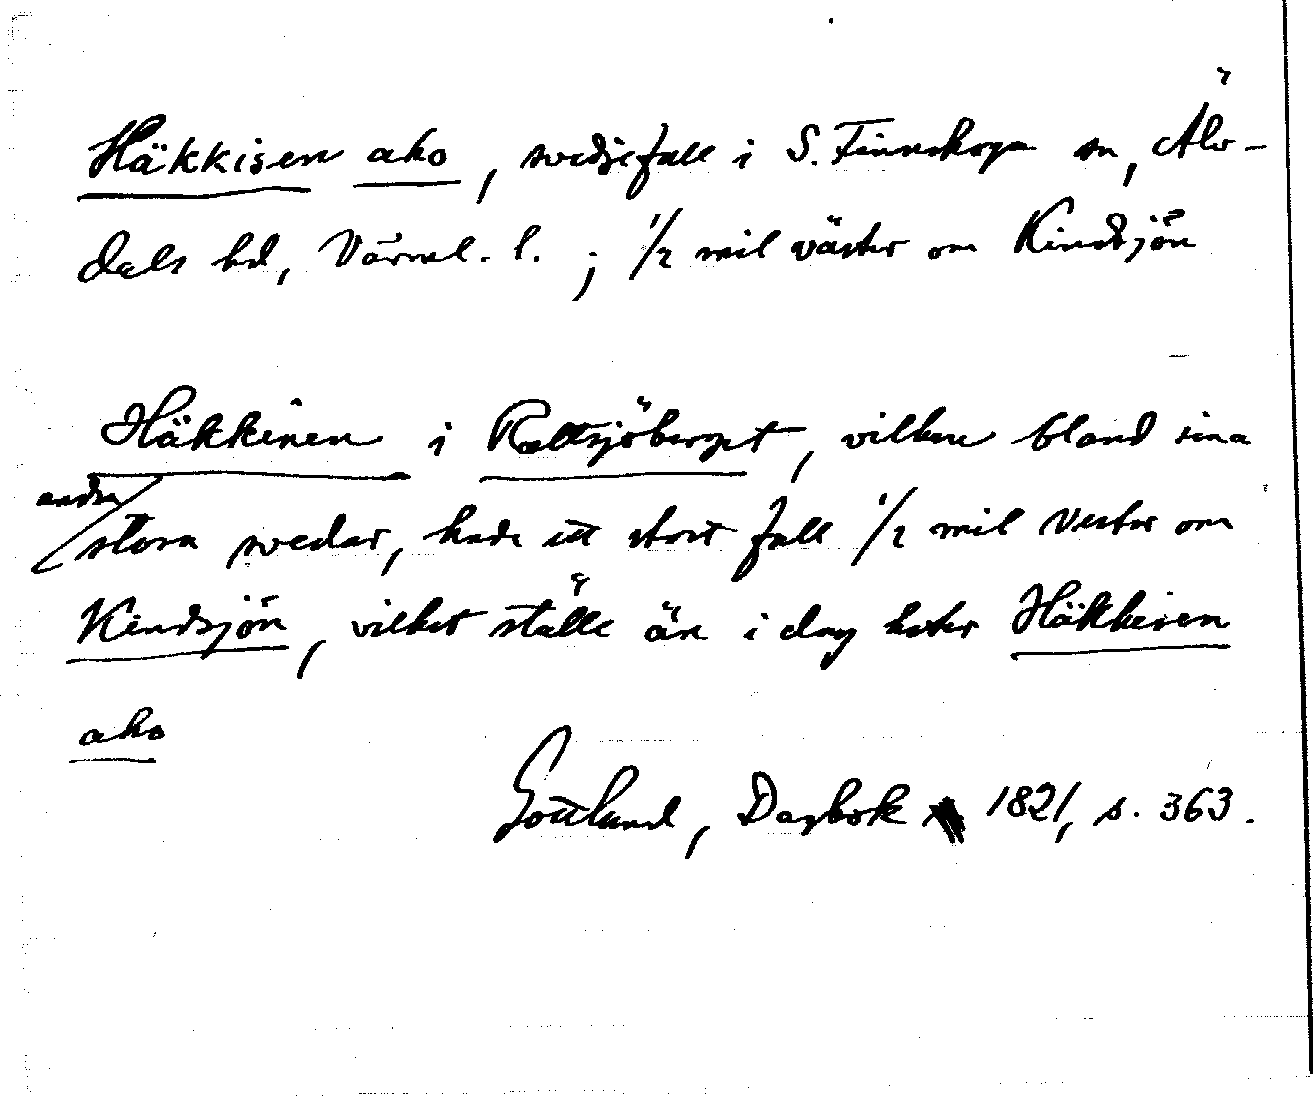 Häkkisen aho, svedjefall i S. Finnskoga sn, Älv-
dals hd, Värml. l. ; 1/2 mil väster om Kindsjön
Häkkinen i Rattsjöberget, vilken bland sina
andra stora svedar, hade ett stort fall 1/2 mil vester om
Kindsjön, vilket ställe än i dag heter Häkkisen
aho
Gottlund, Dagbok 1821, s. 363.